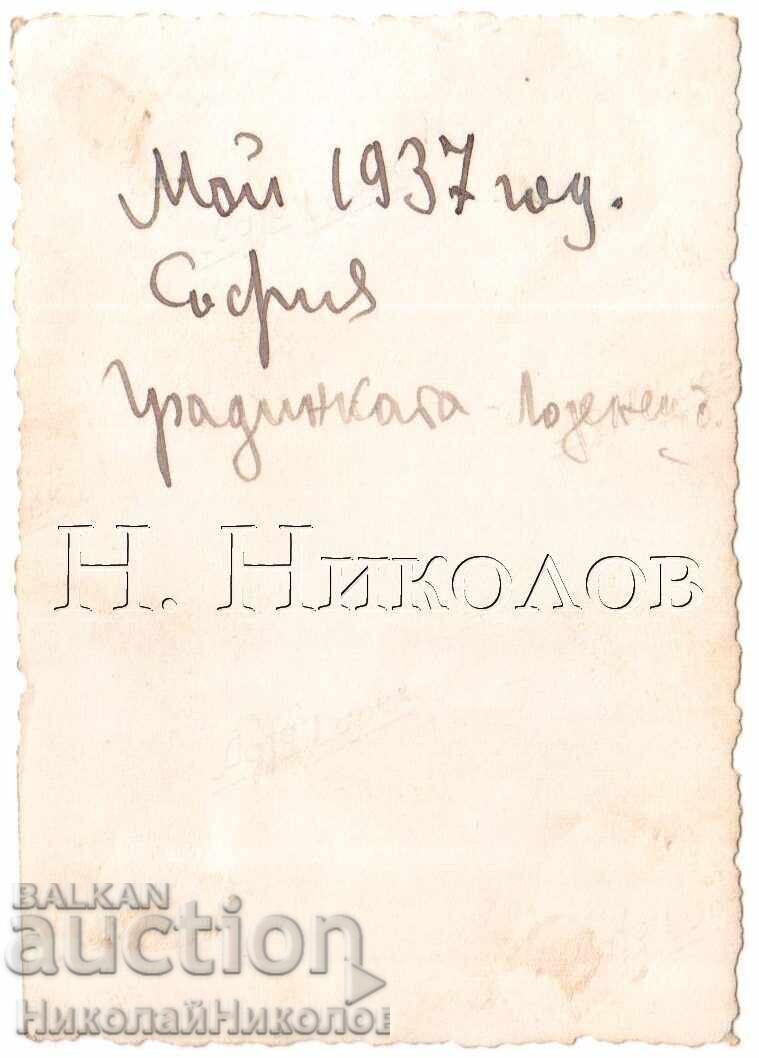 Май 1937 год.
София
Градинката -
Н. Николов
BALKAN
auction
НиколайНиколов